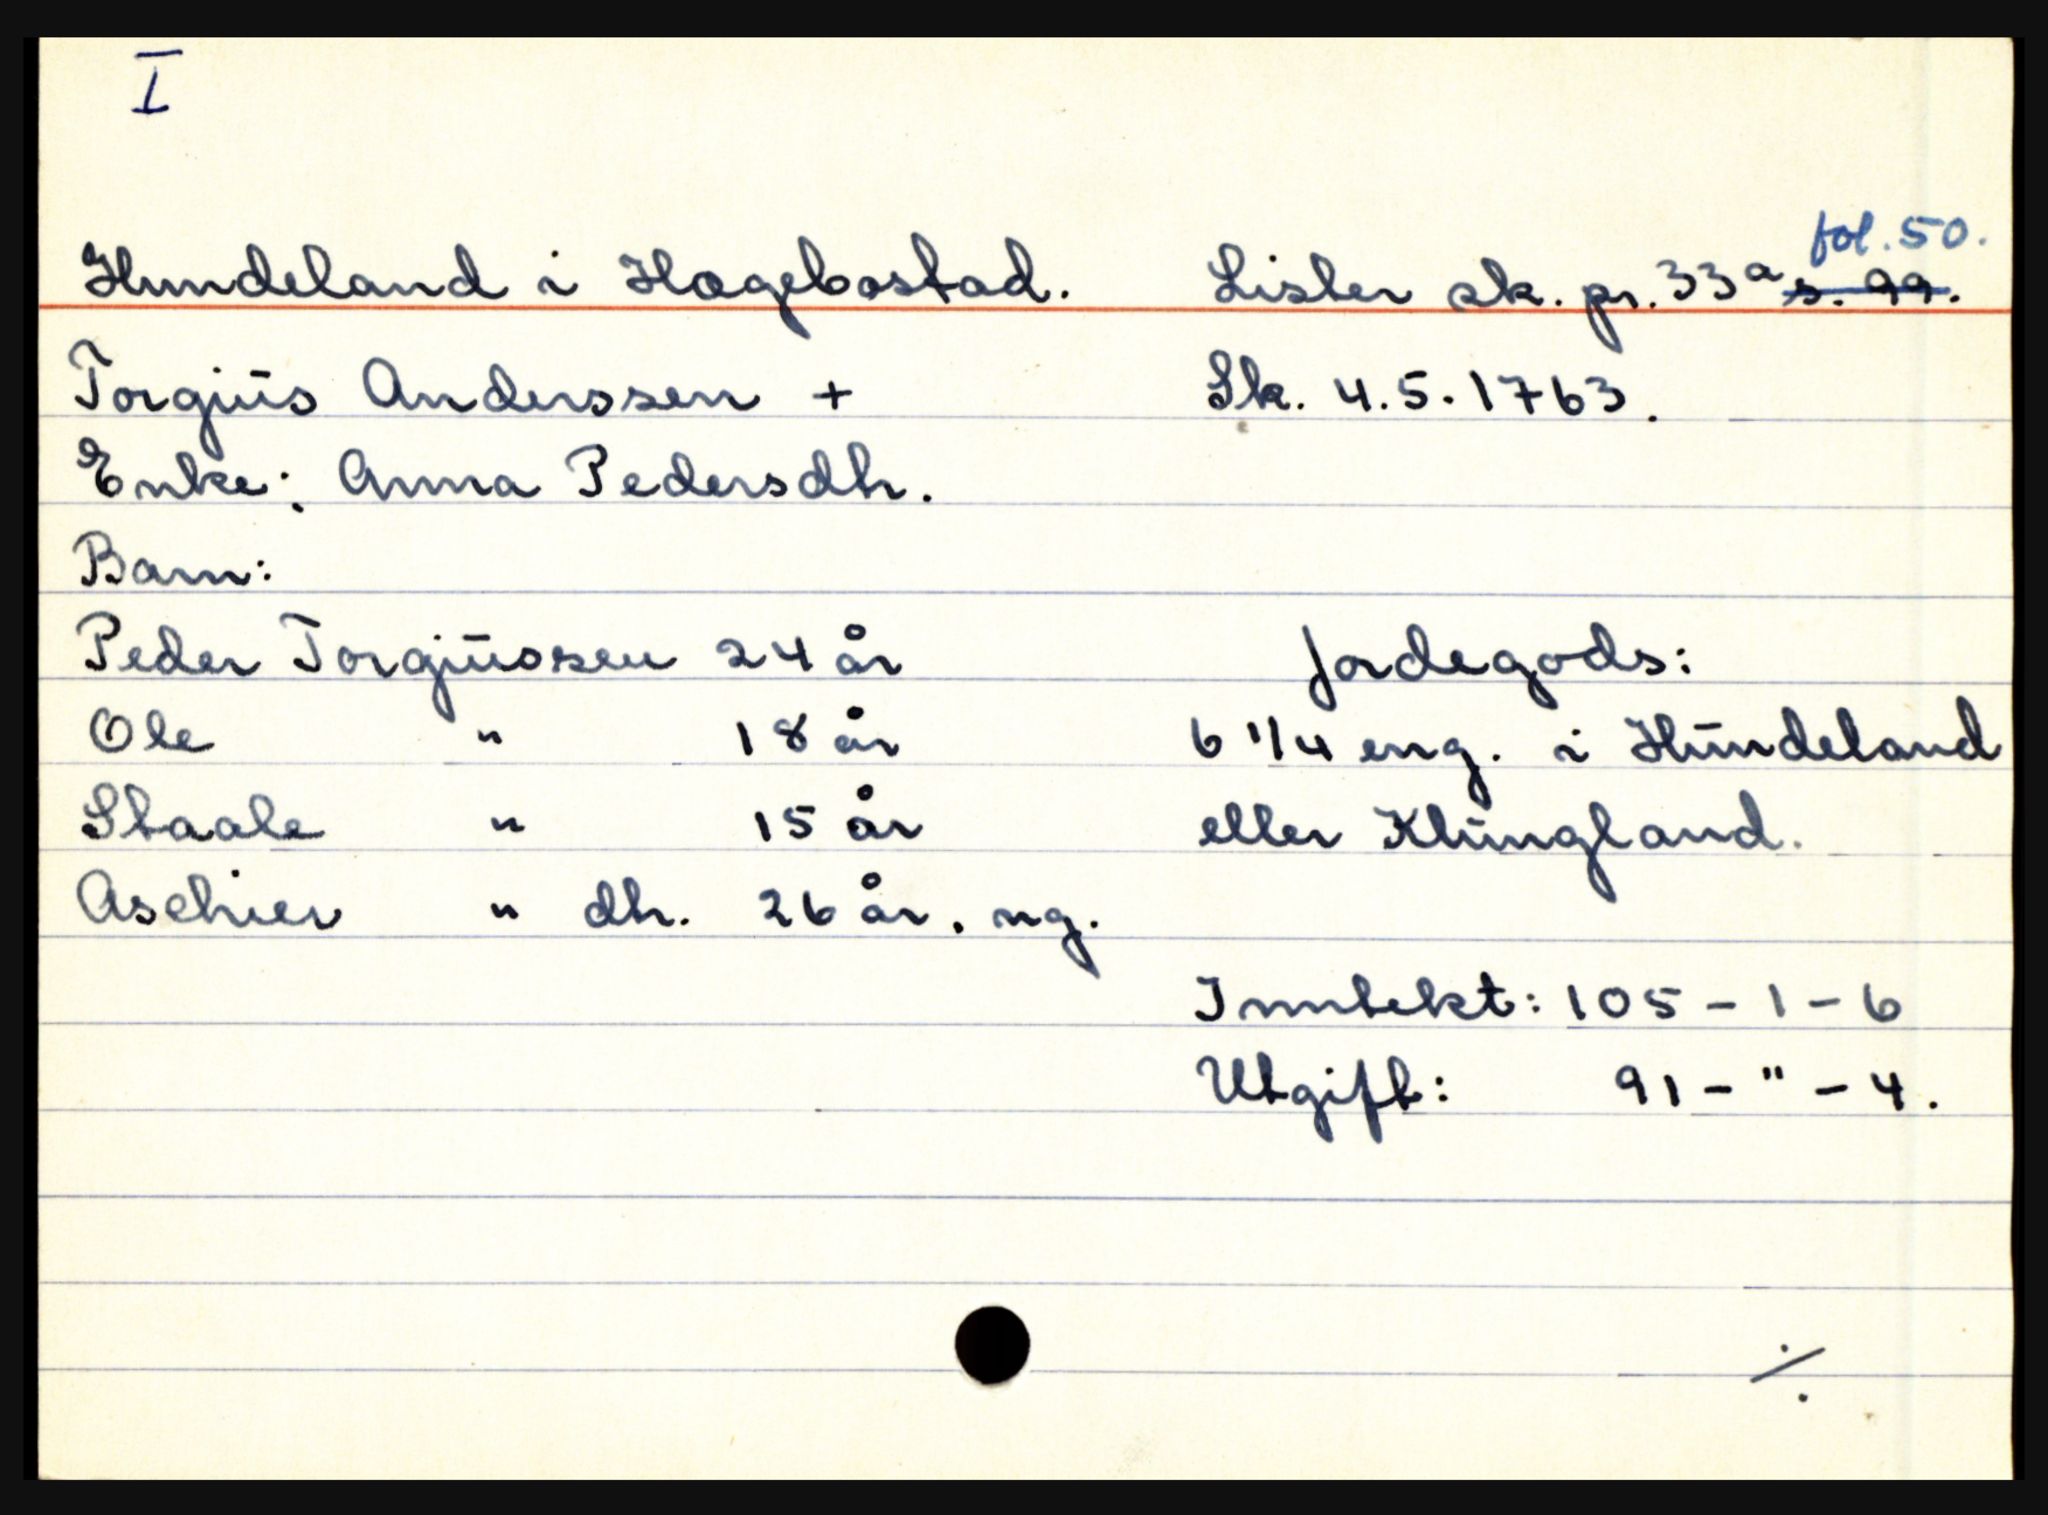 I
fol. 50.
Hundeland i Hægebostad. Lister sk. pr. 33a s. 99.
Torgiūs Anderssen + Sk. 4.5.1763.
Enke: Anna Pedersdtr.
Barn:
Peder Torgiūssen 24 år Jordegods:
Ole " 18 år 6 1/4 eng. i Hūndeland
Staale " 15 år eller Klūngland.
Aschier " dtr. 26 år, ug.
Inntekt: 105 - 1 - 6
Utgift: 91 - " - 4.
./.